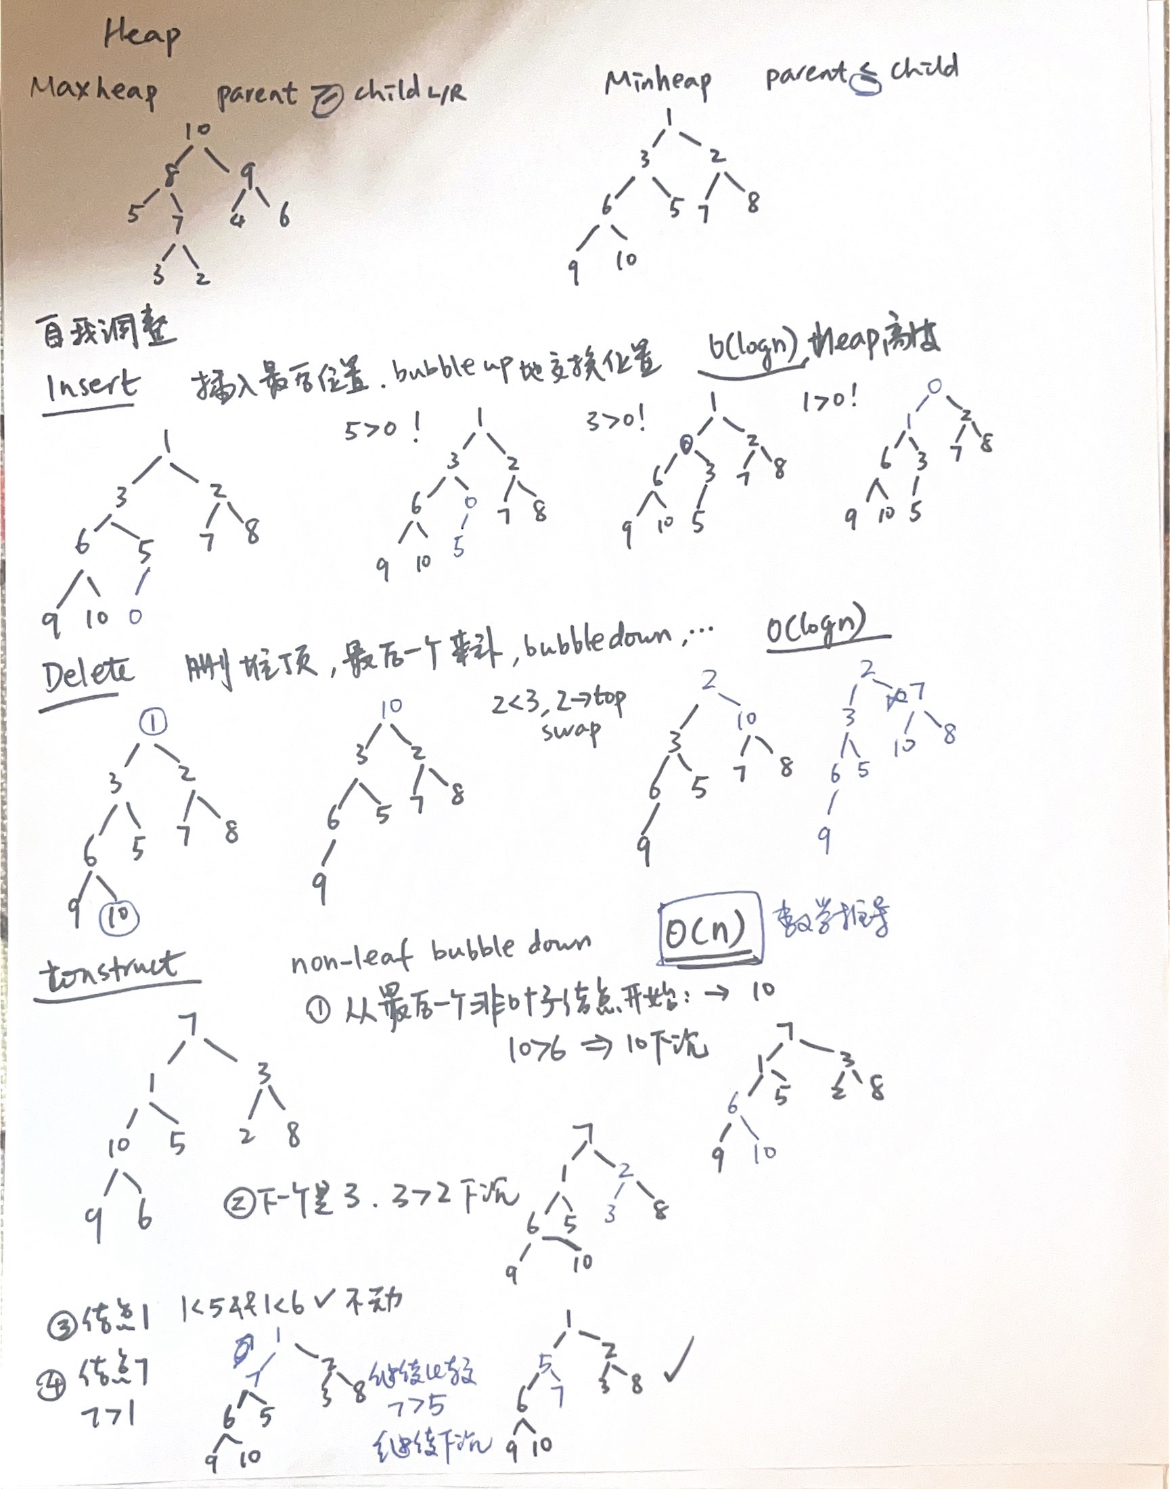 Heap
Maxheap parent ≥ child L/R
Minheap parent ≤ child
10
8 9
5 7 4 6
3 2
1
3 2
6 5 7 8
9 10
自我调整
Insert 插入最后位置.bubble up地交换位置 O(logn),heap高度
1
3 2
6 5 7 8
9 10 0
5>0!
1
3 2
6 0 7 8
9 10 5
3>0!
1
0 2
6 3 7 8
9 10 5
1>0!
0
1 2
6 3 7 8
9 10 5
Delete 删堆顶,最后一个来补,bubble down,… O(logn)
1
3 2
6 5 7 8
9 10
10
3 2
6 5 7 8
9
2<3,2→top
swap
2
3 10
6 5 7 8
9
2
3 7
6 5 10 8
9
Construct non-leaf bubble down O(n) 数学推导
① 从最后一个非叶子结点开始:→ 10
10>6 ⇒ 10下沉
7
1 3
10 5 2 8
9 6
7
1 3
6 5 2 8
9 10
②下一个是3.3>2下沉
7
1 2
6 5 3 8
9 10
③结点1 1<5和1<6✓不动
④结点7
7>1
1
7 2
6 5 3 8
9 10
继续比较
7>5
继续下沉
1
5 2
6 7 3 8
9 10
✓